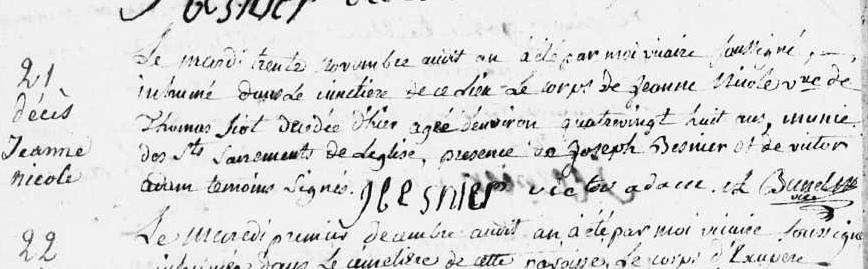 Besnier
21
décès
Jeanne
nicole
Le mardi trente novembre audit an a été par moi vicaire soussigné,
inhumé dans le cimetiere de ce lieu le corps de Jeanne Nicole vve de
Thomas Fiot decédée d'hier agée d'environ quatrevingt huit ans, munie
des Sts Sacrements de Leglise, presence de Joseph Besnier et de victor
adam temoins signés. J Besnier victor adam L Bunel
vic
22
Le mercredi premier decembre audit an a été par moi vicaire soussigné
inhumé dans le cimetière de cette paroisse Le corps d'Exupere